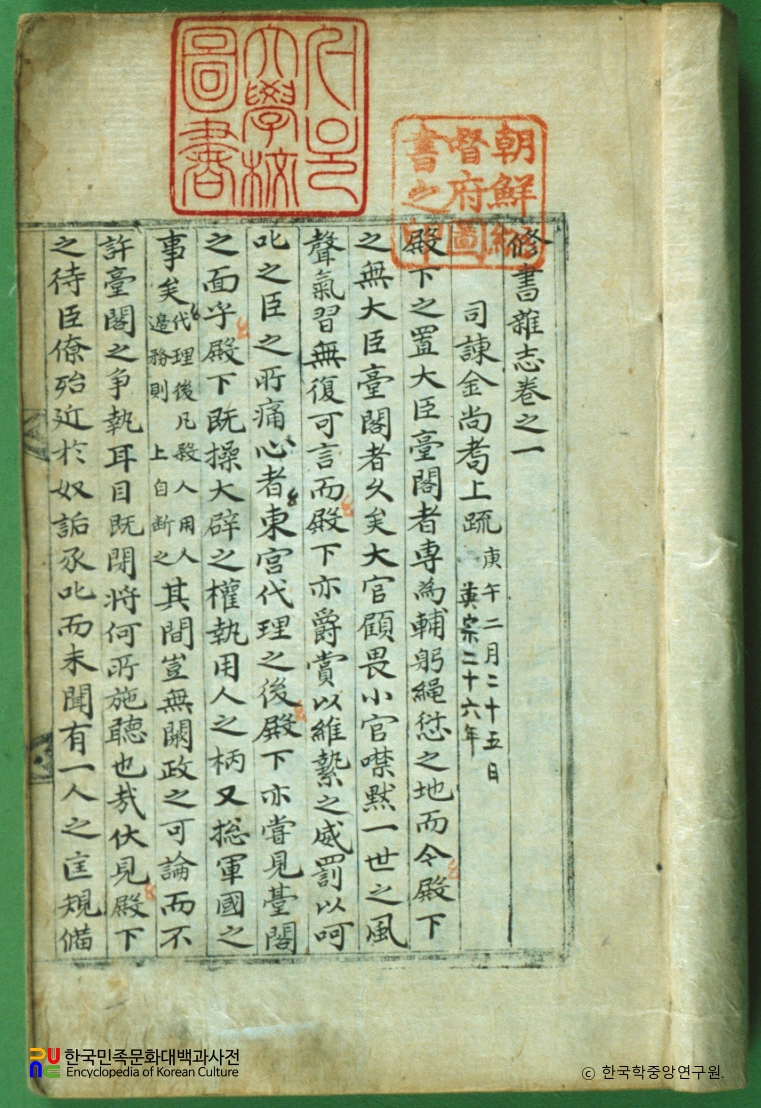 서울大學校圖書
朝鮮總督府圖書之印
修書雜志卷之一
司諫金尚耈上疏 庚午二月二十五日
英宗二十六年
殿下之置大臣臺閣者專爲輔躬繩愆之地而今殿下
之無大臣臺閣者久矣大官顧畏小官噤默一世之風
聲氣習無復可言而殿下亦爵賞以維縶之威罰以呵
叱之臣之所痛心者東宮代理之後殿下亦嘗見臺閣
之面乎殿下既操大辟之權執用人之柄又摠軍國之
事矣 代理後凡殺人用人
邊務則 上自断之
其間豈無闕政之可論而不
許臺閣之爭執耳目既閉將何所施聽也哉伏見殿下
之待臣僚殆近於奴詬承叱而未聞有一人之匡規備
한국민족문화대백과사전
Encyclopedia of Korean Culture
© 한국학중앙연구원.